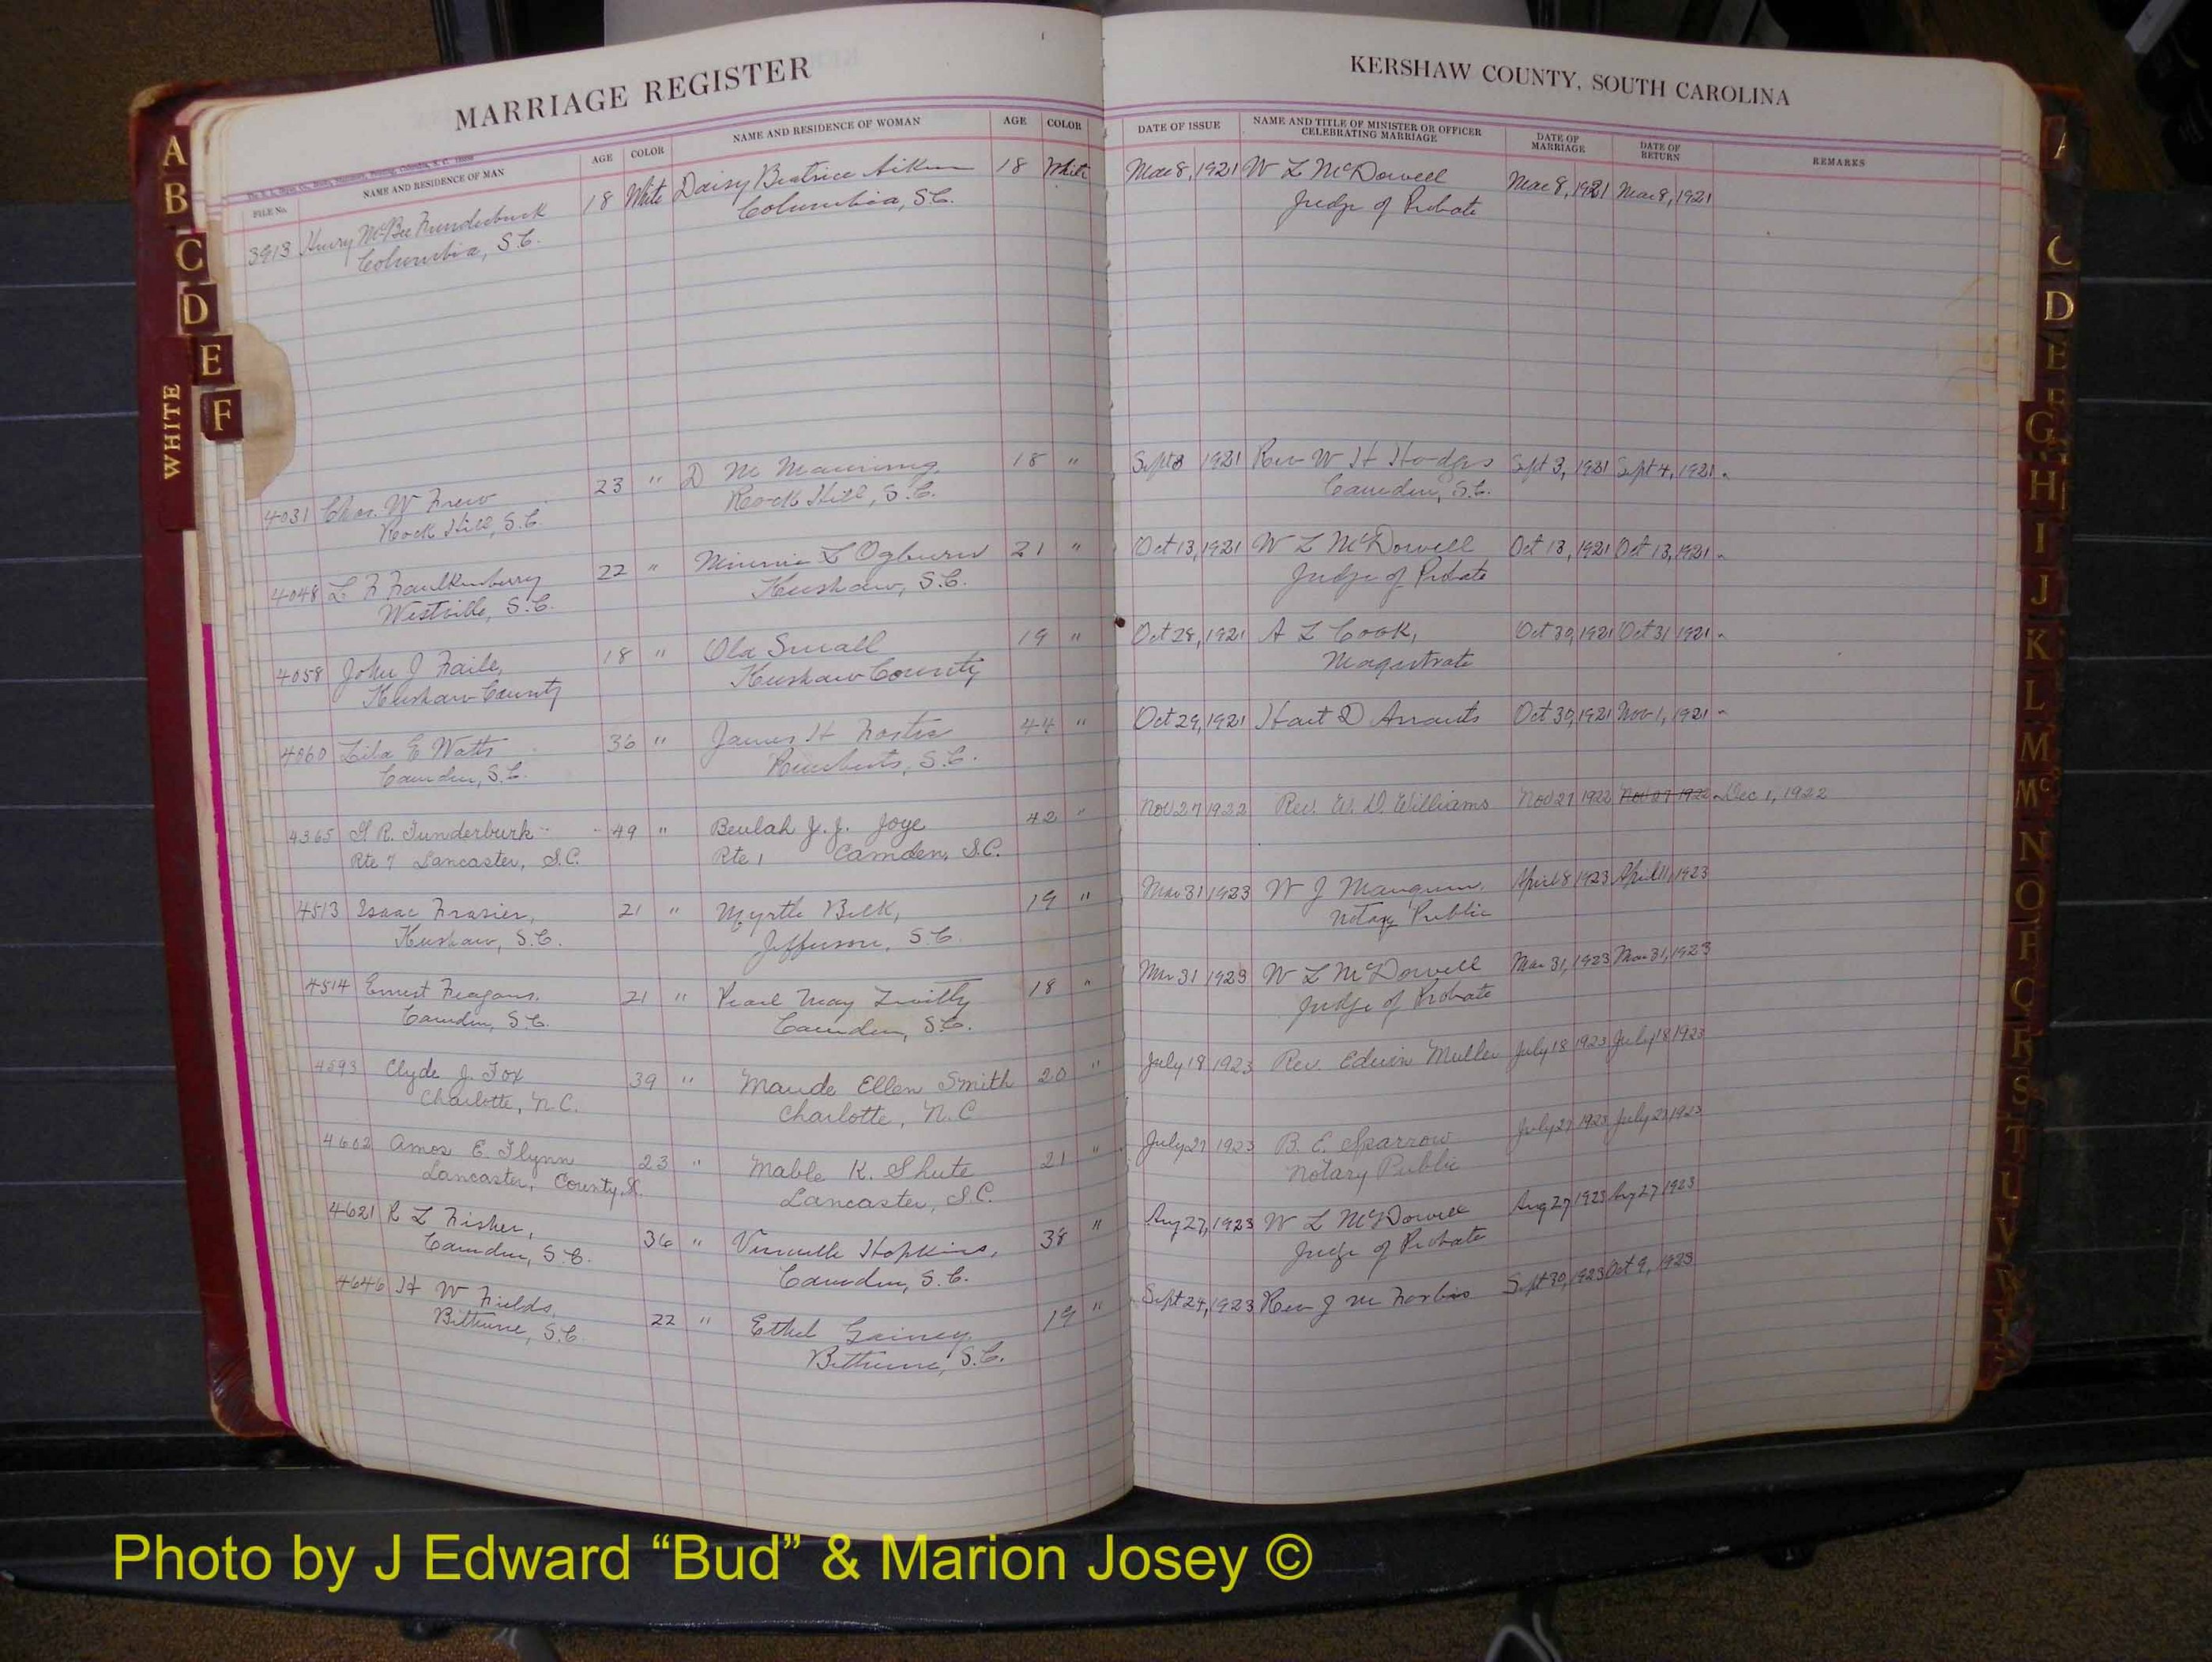 MARRIAGE REGISTER
KERSHAW COUNTY, SOUTH CAROLINA
FILE No. NAME AND RESIDENCE OF MAN AGE COLOR NAME AND RESIDENCE OF WOMAN AGE COLOR DATE OF ISSUE NAME AND TITLE OF MINISTER OR OFFICER CELEBRATING MARRIAGE DATE OF MARRIAGE DATE OF RETURN REMARKS
3913 Henry McBee Funderburk 18 White Daisy Beatrice Aiken 18 White Mar 8, 1921 W L McDowell Mar 8, 1921 Mar 8, 1921
Columbia, S.C. Columbia, S.C. Judge of Probate
4031 Chas. W Frew 23 " D M Manning, 18 " Sept 3 1921 Rev W H Hodges Sept 3, 1921 Sept 4, 1921
Rock Hill, S.C. Rock Hill, S.C. Camden, S.C.
4048 L F Faulkenberry 22 " Minnie L Ogburn 21 " Oct 13, 1921 W L McDowell Oct 13, 1921 Oct 13, 1921
Westville, S.C. Kershaw, S.C. Judge of Probate
4058 John J Faile, 18 " Ola Small 19 " Oct 28, 1921 A L Cook, Oct 30, 1921 Oct 31 1921
Kershaw County Kershaw County Magistrate
4060 Lila E Watts 36 " James H Foster 44 " Oct 29, 1921 Hart D Arrants Oct 30, 1921 Nov 1, 1921
Camden, S.C. Remberts, S.C.
4365 G R. Funderburk 49 " Beulah J. J. Joye 42 " Nov 27 1922 Rev. W. D. Williams Nov 27 1922 Nov 27 1922 Dec 1, 1922
Rte 7 Lancaster, S.C. Rte 1 Camden, S.C.
4513 Isaac Frasier, 21 " Myrtle Belk, 19 " Mar 31 1923 W J Mangum, April 8 1923 April 11, 1923
Kershaw, S.C. Jefferson, S.C. Notary Public
4514 Ernest Feagans. 21 " Pearl May 18 " Mar 31 1923 W L McDowell Mar 31, 1923 Mar 31, 1923
Camden, S.C. Camden, S.C. Judge of Probate
4593 Clyde J. Fox 39 " Maude Ellen Smith 20 " July 18 1923 Rev. Edwin Muller July 18 1923 July 18 1923
Charlotte, N.C. Charlotte, N.C
4602 Amos E. Flynn 23 " Mable K. Shute 21 " July 27 1923 B. E. Sparrow July 27 1923 July 27 1923
Lancaster, County, S. Lancaster, S.C. Notary Public
4621 R L Fisher, 36 " Hopkins, 38 " Aug 27, 1923 W L McDowell Aug 27 1923 Aug 27 1923
Camden, S.C. Camden, S.C. Judge of Probate
4646 H W Fields, 22 " Ethel Gainey, 19 " Sept 24, 1923 Rev J M Forbis Sept 30, 1923 Oct 9, 1923
Bethune, S.C Bethune, S.C.
A
B
C
D
E
F
WHITE
A
C
D
E
F
G
H
I
J
K
L
M
Mc
N
O
P
Q
R
S
T
U
V
W
Photo by J Edward “Bud” & Marion Josey ©